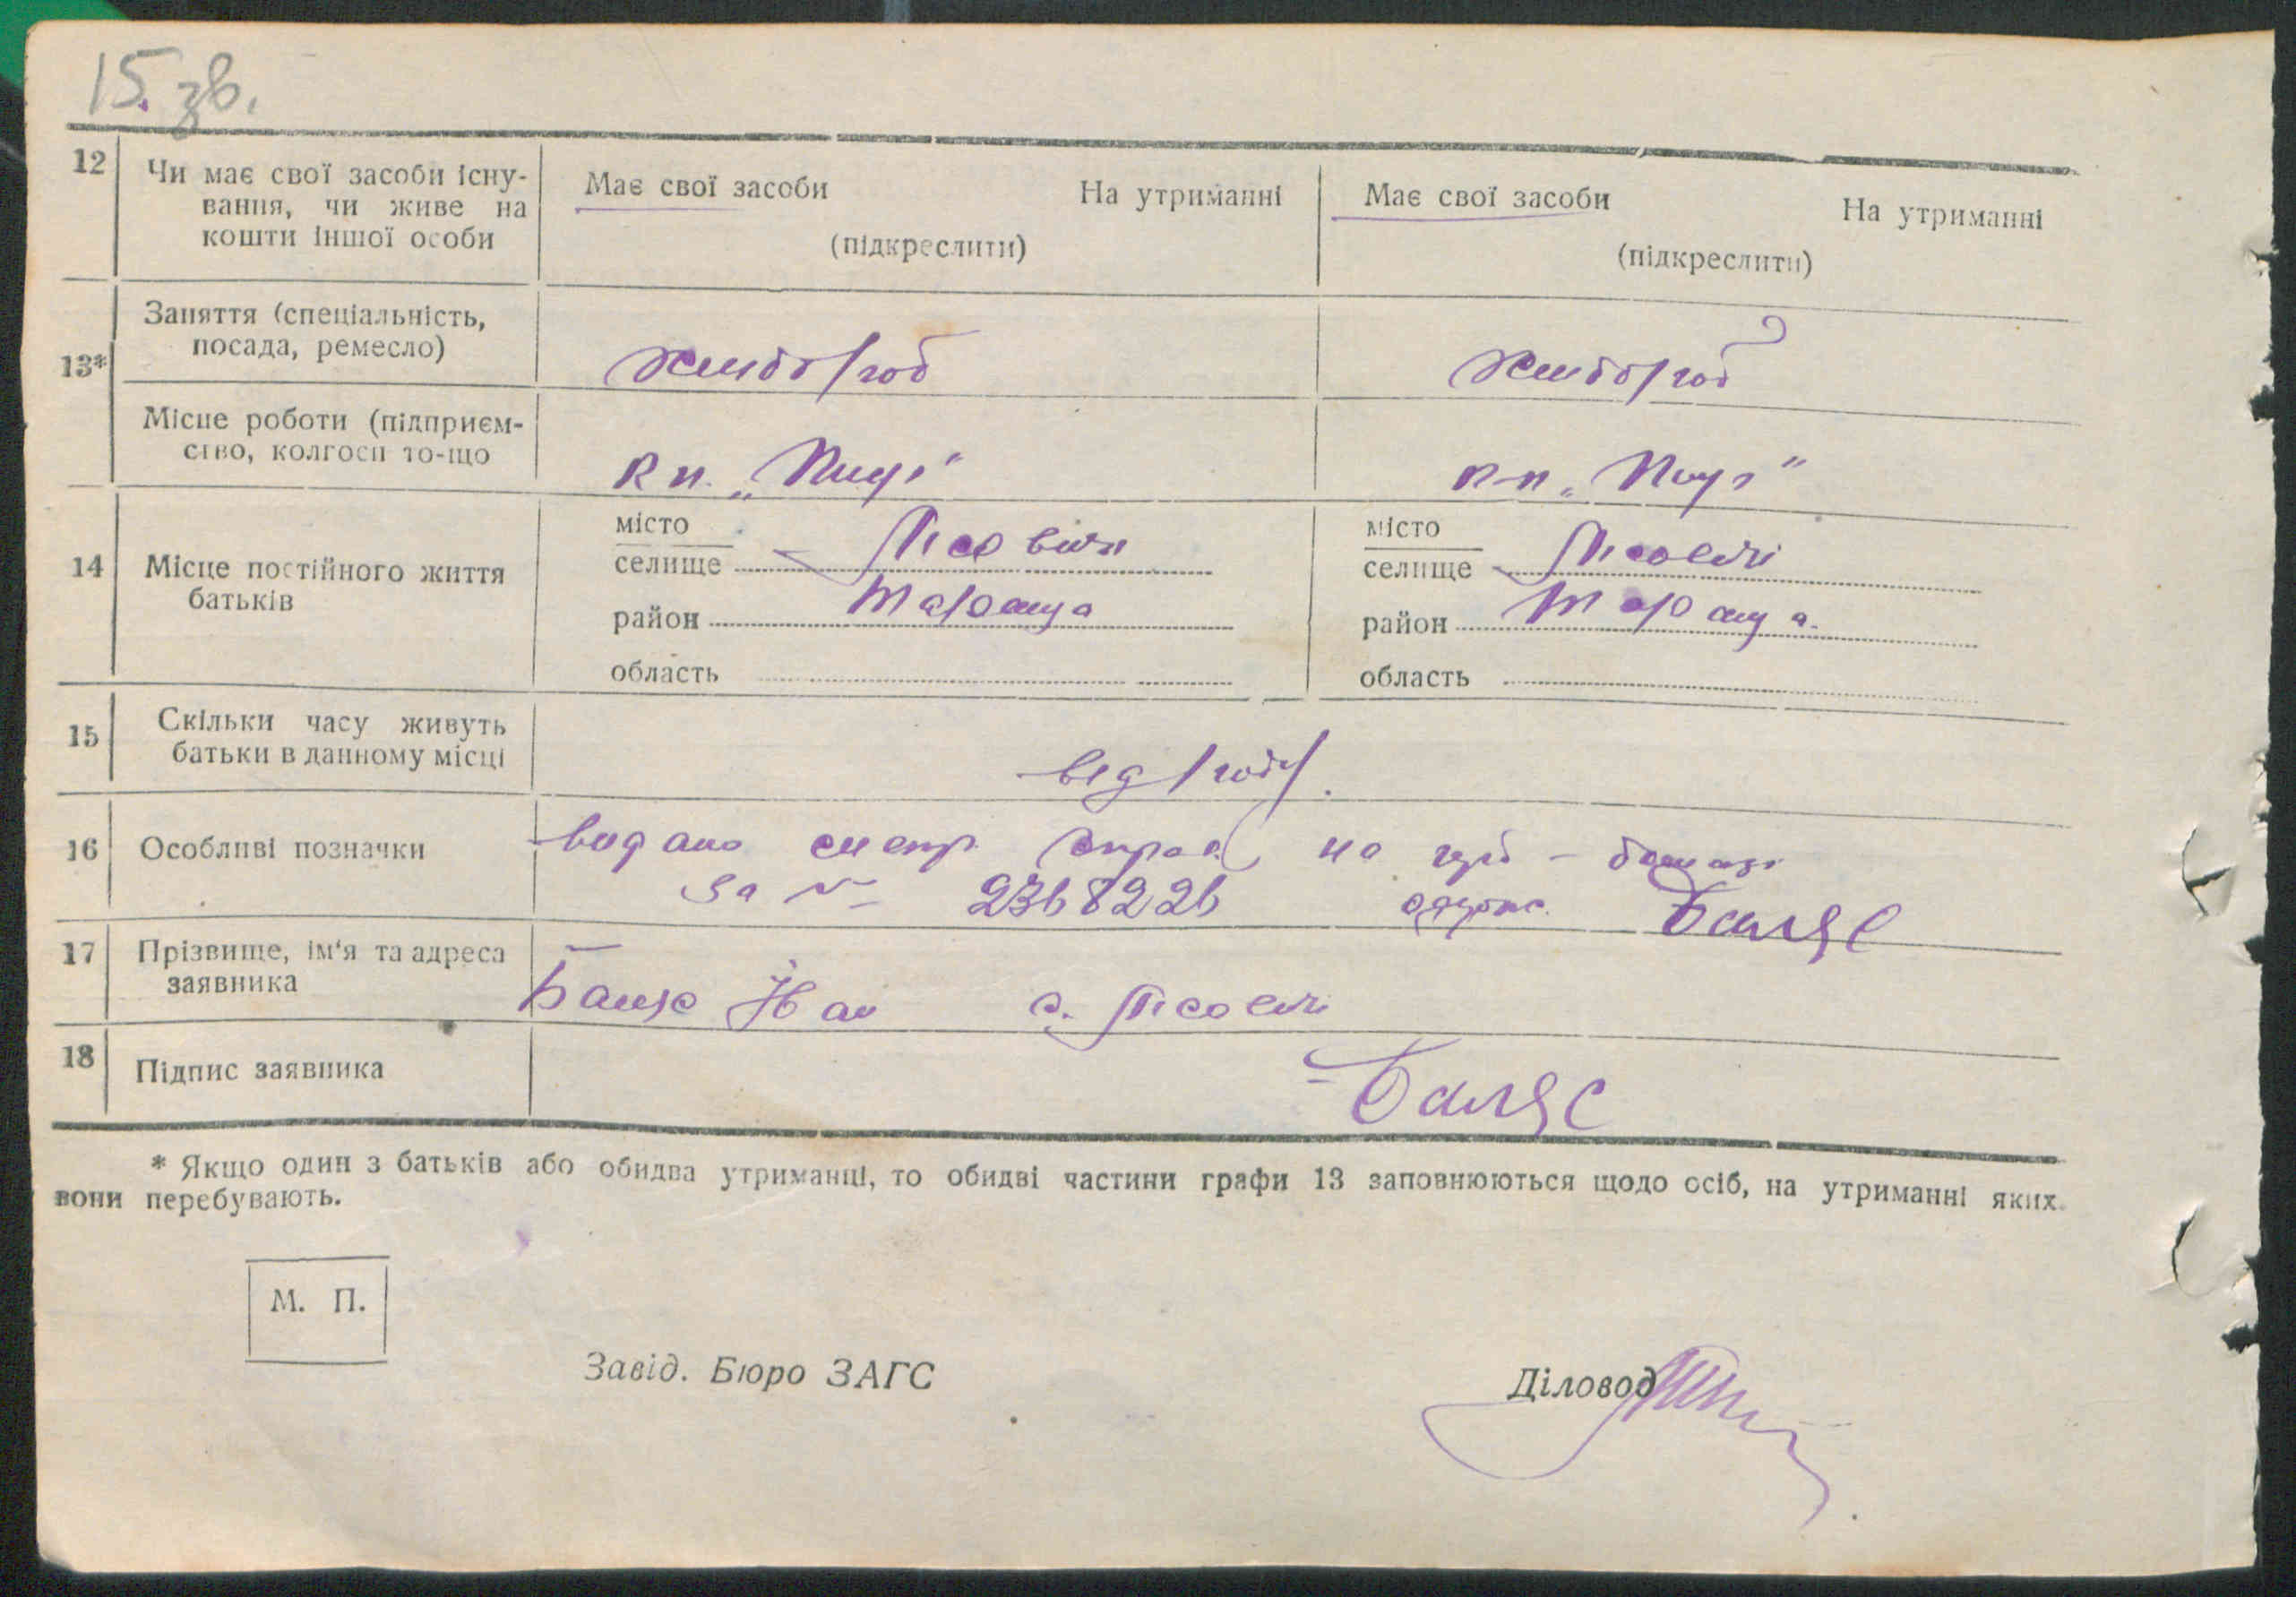 15. зв.
12 Чи має свої засоби існу-
вання, чи живе на
кошти іншої особи
Має свої засоби На утриманні
(підкреслити)
Має свої засоби На утриманні
(підкреслити)
13*
Заняття (спеціальність,
посада, ремесло)
хлібороб
хлібороб
Місце роботи (підприєм-
ство, колгосп то-що
14 Місце постійного життя
батьків
місто
селище Лісовичі
район Тараща
область
місто
селище Лісовичі
район Тараща
область
15 Скільки часу живуть
батьки в данному місці
від роду
16 Особливі позначки
видано на
за № 2368226 Баляс
17 Прізвище, ім'я та адреса
заявника
Баляс Іван с. Лісовичі
18 Підпис заявника
Баляс
* Якщо один з батьків або обидва утриманці, то обидві частини графи 13 заповнюються щодо осіб, на утриманні яких
вони перебувають.
М. П.
Завід. Бюро ЗАГС
Діловод